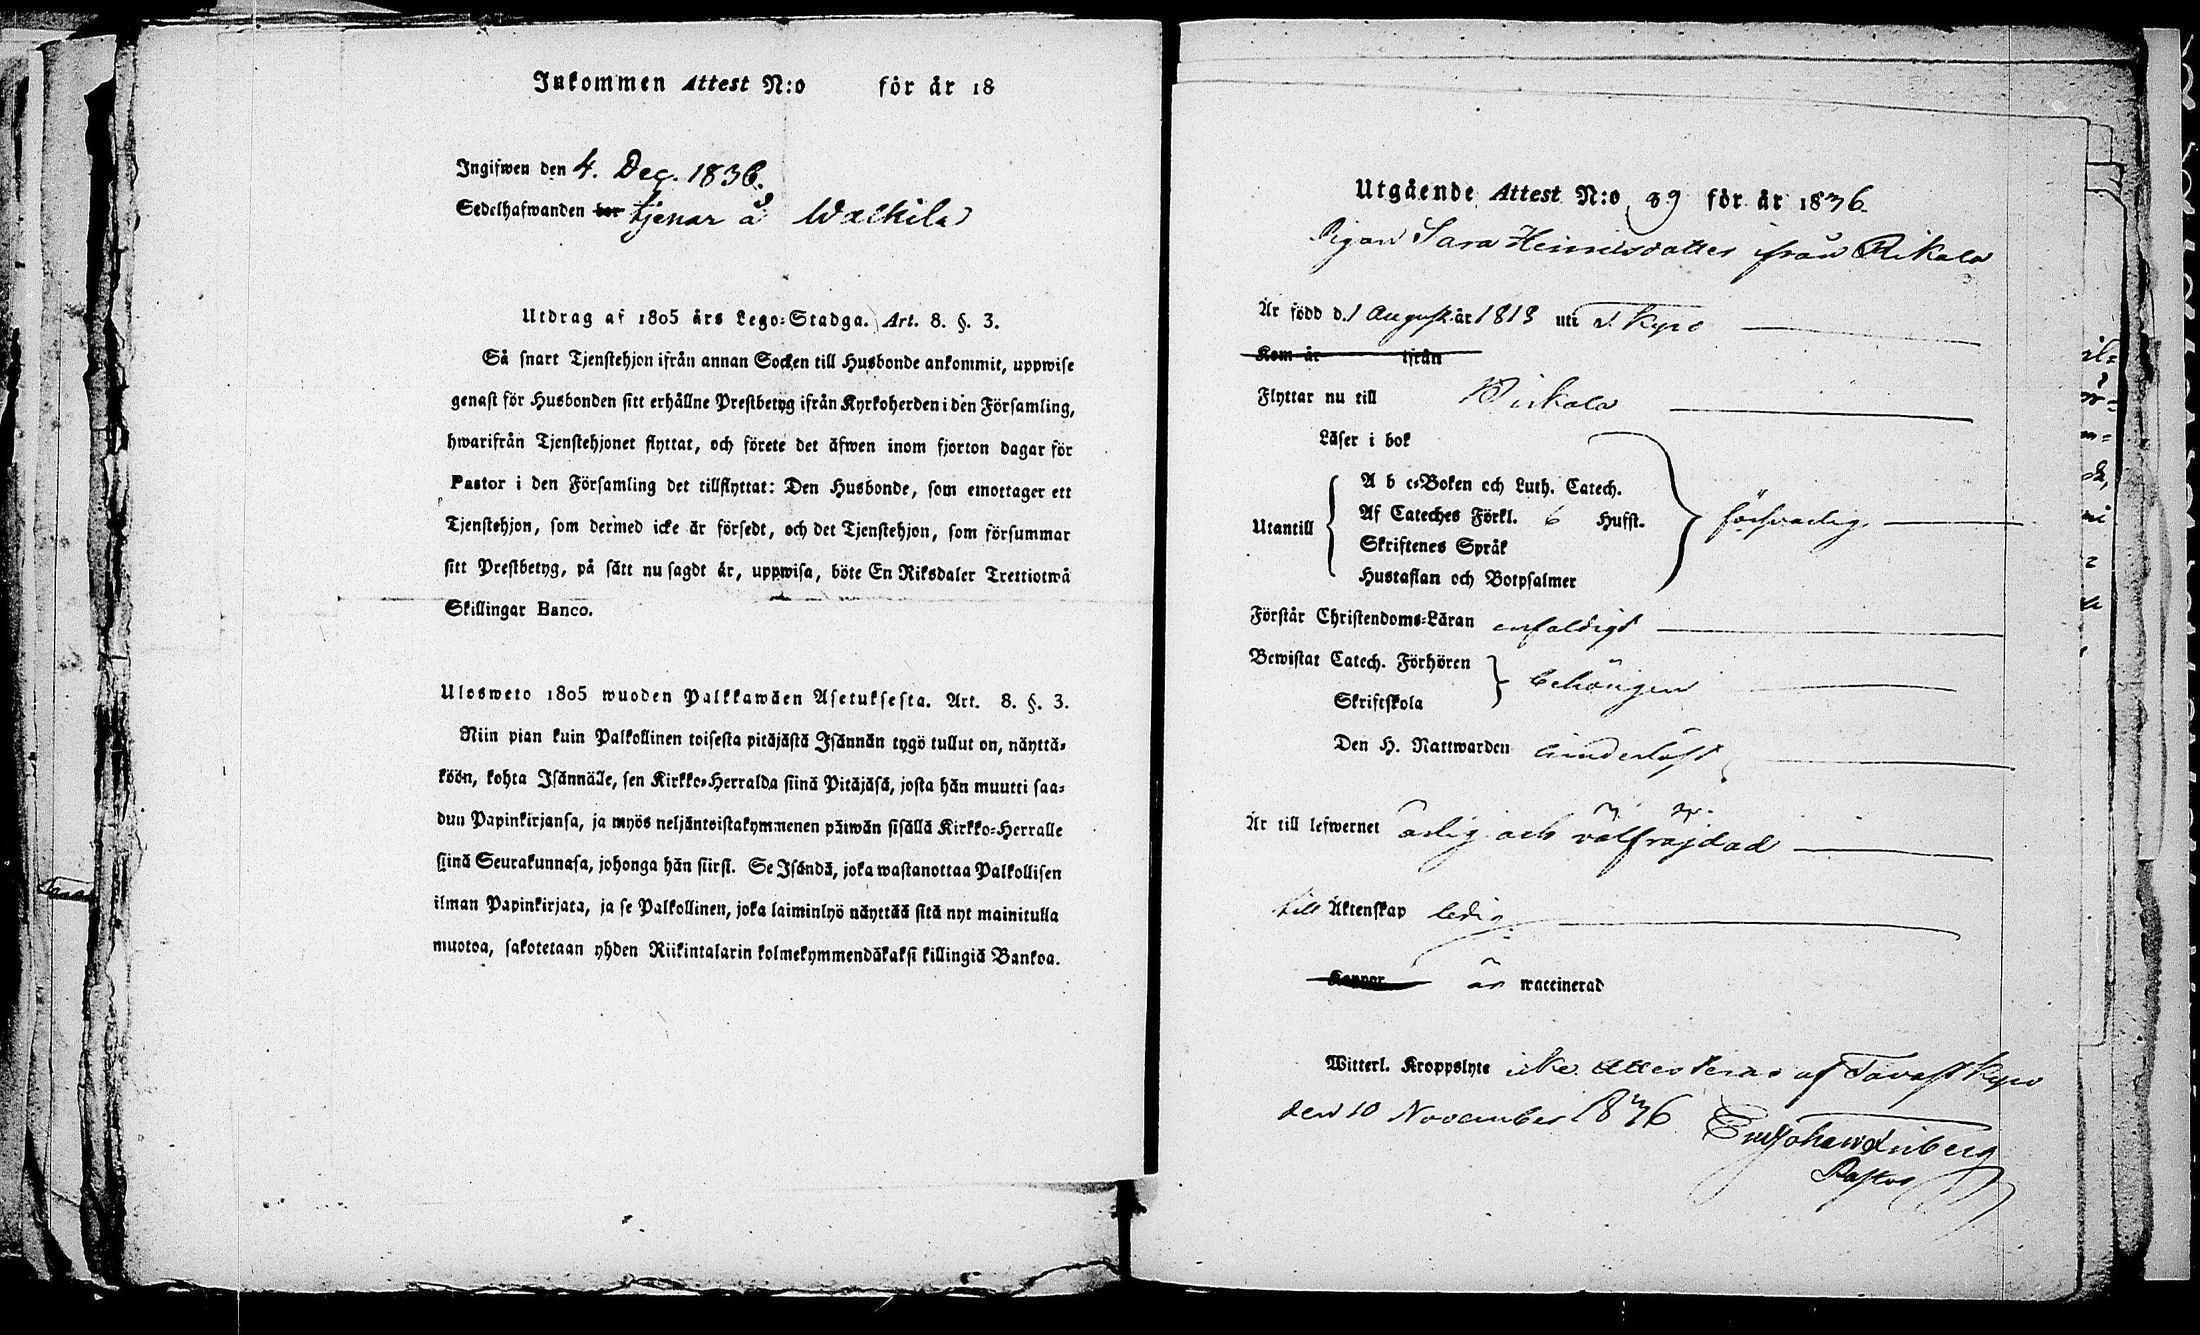 Inkommen Attest N:o för år 18
Ingifwen den 4. Dec. 1836.
Sedelhafwanden bor tjenar å Walkila
Utdrag af 1805 års Lego-Stadga. Art. 8. §. 3.
Så snart Tjenstehjon ifrån annan Socken till Husbonde ankommit, uppwise
genast för Husbonden sitt erhållne Prestbetyg ifrån Kyrkoherden i den Församling,
hwarifrån Tjenstehjonet flyttat, och förete det äfwen inom fjorton dagar för
Pastor i den Församling det tillflyttat: Den Husbonde, som emottager ett
Tjenstehjon, som dermed icke är försedt, och det Tjenstehjon, som försummar
sitt Prestbetyg, på sätt nu sagdt är, uppwisa, böte En Riksdaler Trettiotwå
Skillingar Banco.
Ulosweto 1805 wuoden Palkkawäen Asetuksesta. Art. 8. §. 3.
Niin pian kuin Palkollinen toisesta pitäjästä Isännän tygö tullut on, näyttä-
köön, kohta Isännälle, sen Kirkko-Herralda siinä Pitäjäsä, josta hän muutti saa-
dun Papinkirjansa, ja myös neljäntoistakymmenen päiwän sisällä Kirkko-Herralle
siinä Seurakunnasa, johonga hän siirst. Se Isändä, joka wastanottaa Palkollisen
ilman Papinkirjata, ja se Palkollinen, joka laiminlyö näyttää sitä nyt mainitulla
muotoa, sakotetaan yhden Riikintalarin kolmekymmendäkaksi killingiä Bankoa.
Utgående Attest N:o 89 för år 1836.
Pigan Sara Henriksdotter ifrån Rikala
Är född d. 1 August. år 1813 uti T. Kyro
Kom år ifrån
Flyttar nu till Birkala
Läser i bok
A b c-Boken och Luth. Catech.
Utantill Af Cateches Förkl. 6 Hufst. försvarlig
Skriftenes Språk
Hustaflan och Botpsalmer
Förstår Christendoms-Läran enfaldigt
Bewistat Catech. Förhören behörigen
Skriftskola
Den H. Nattwarden
Är till lefwernet ärlig och välfräjdad
till Äktenskap ledig
Koppor är waccinerad
Witterl. Kroppslyte icke. Attesteras af Tavast Kyro
den 10 November 1836
Pastor